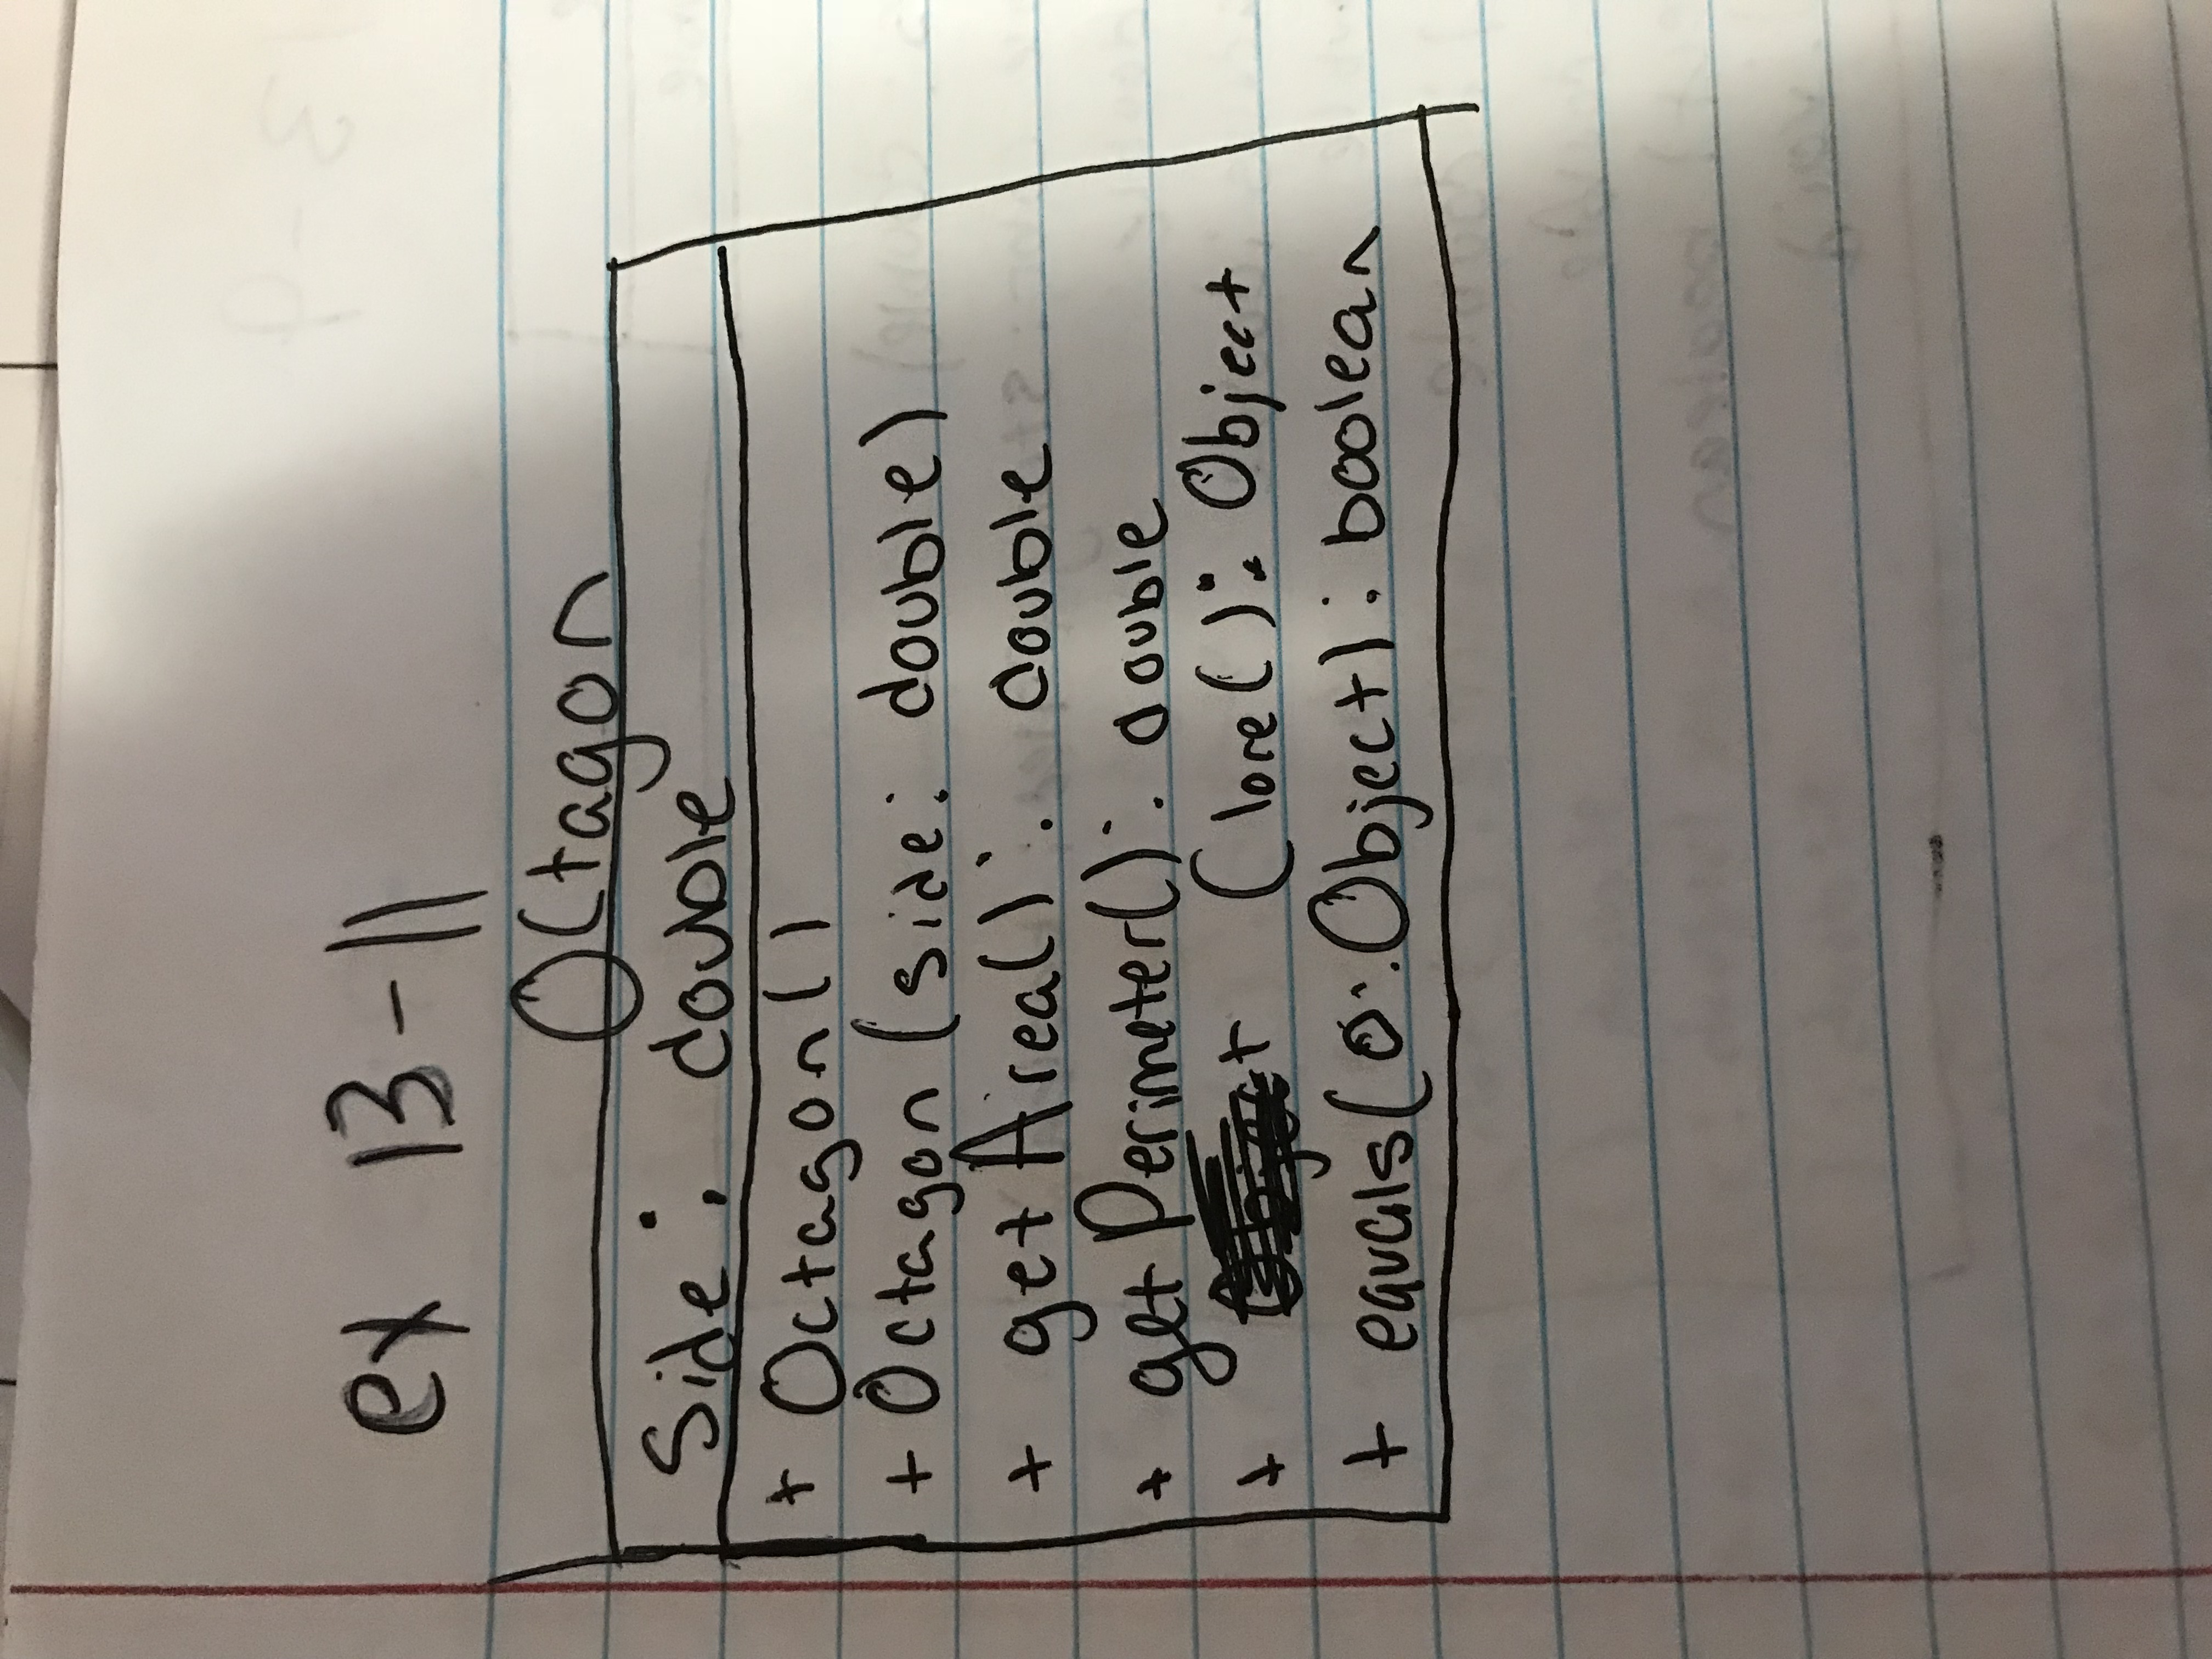 ex 13-11
Octagon
Side: double
+ Octagon()
+ Octagon (side: double)
+ getArea(): double
+ getPerimeter(): double
+ Clone(): Object
+ equals(o:Object): boolean
13-9